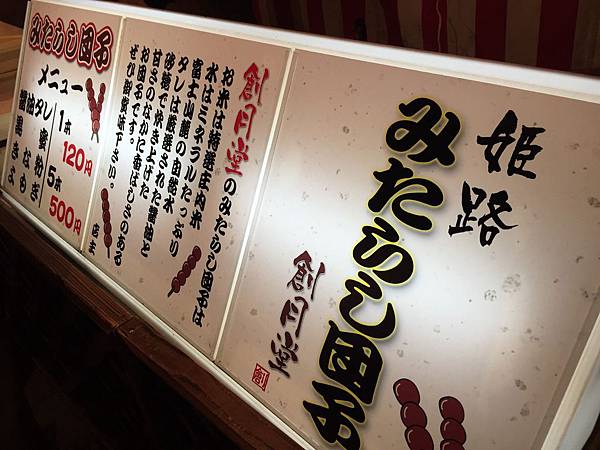 姫路
みたらし団子
創円堂
創円堂のみたらし団子は
お米は特選庄内米
水はミネラルたっぷり
富士山麓の自然水
タレは厳選された醤油と
砂糖で炊き上げた
甘さのなかに香ばしさのある
お団子です。
ぜひ御賞味下さい。
店主
みたらし団子
メニュー
1本 120円
5本 500円
醤油タレ
黒蜜きなこ